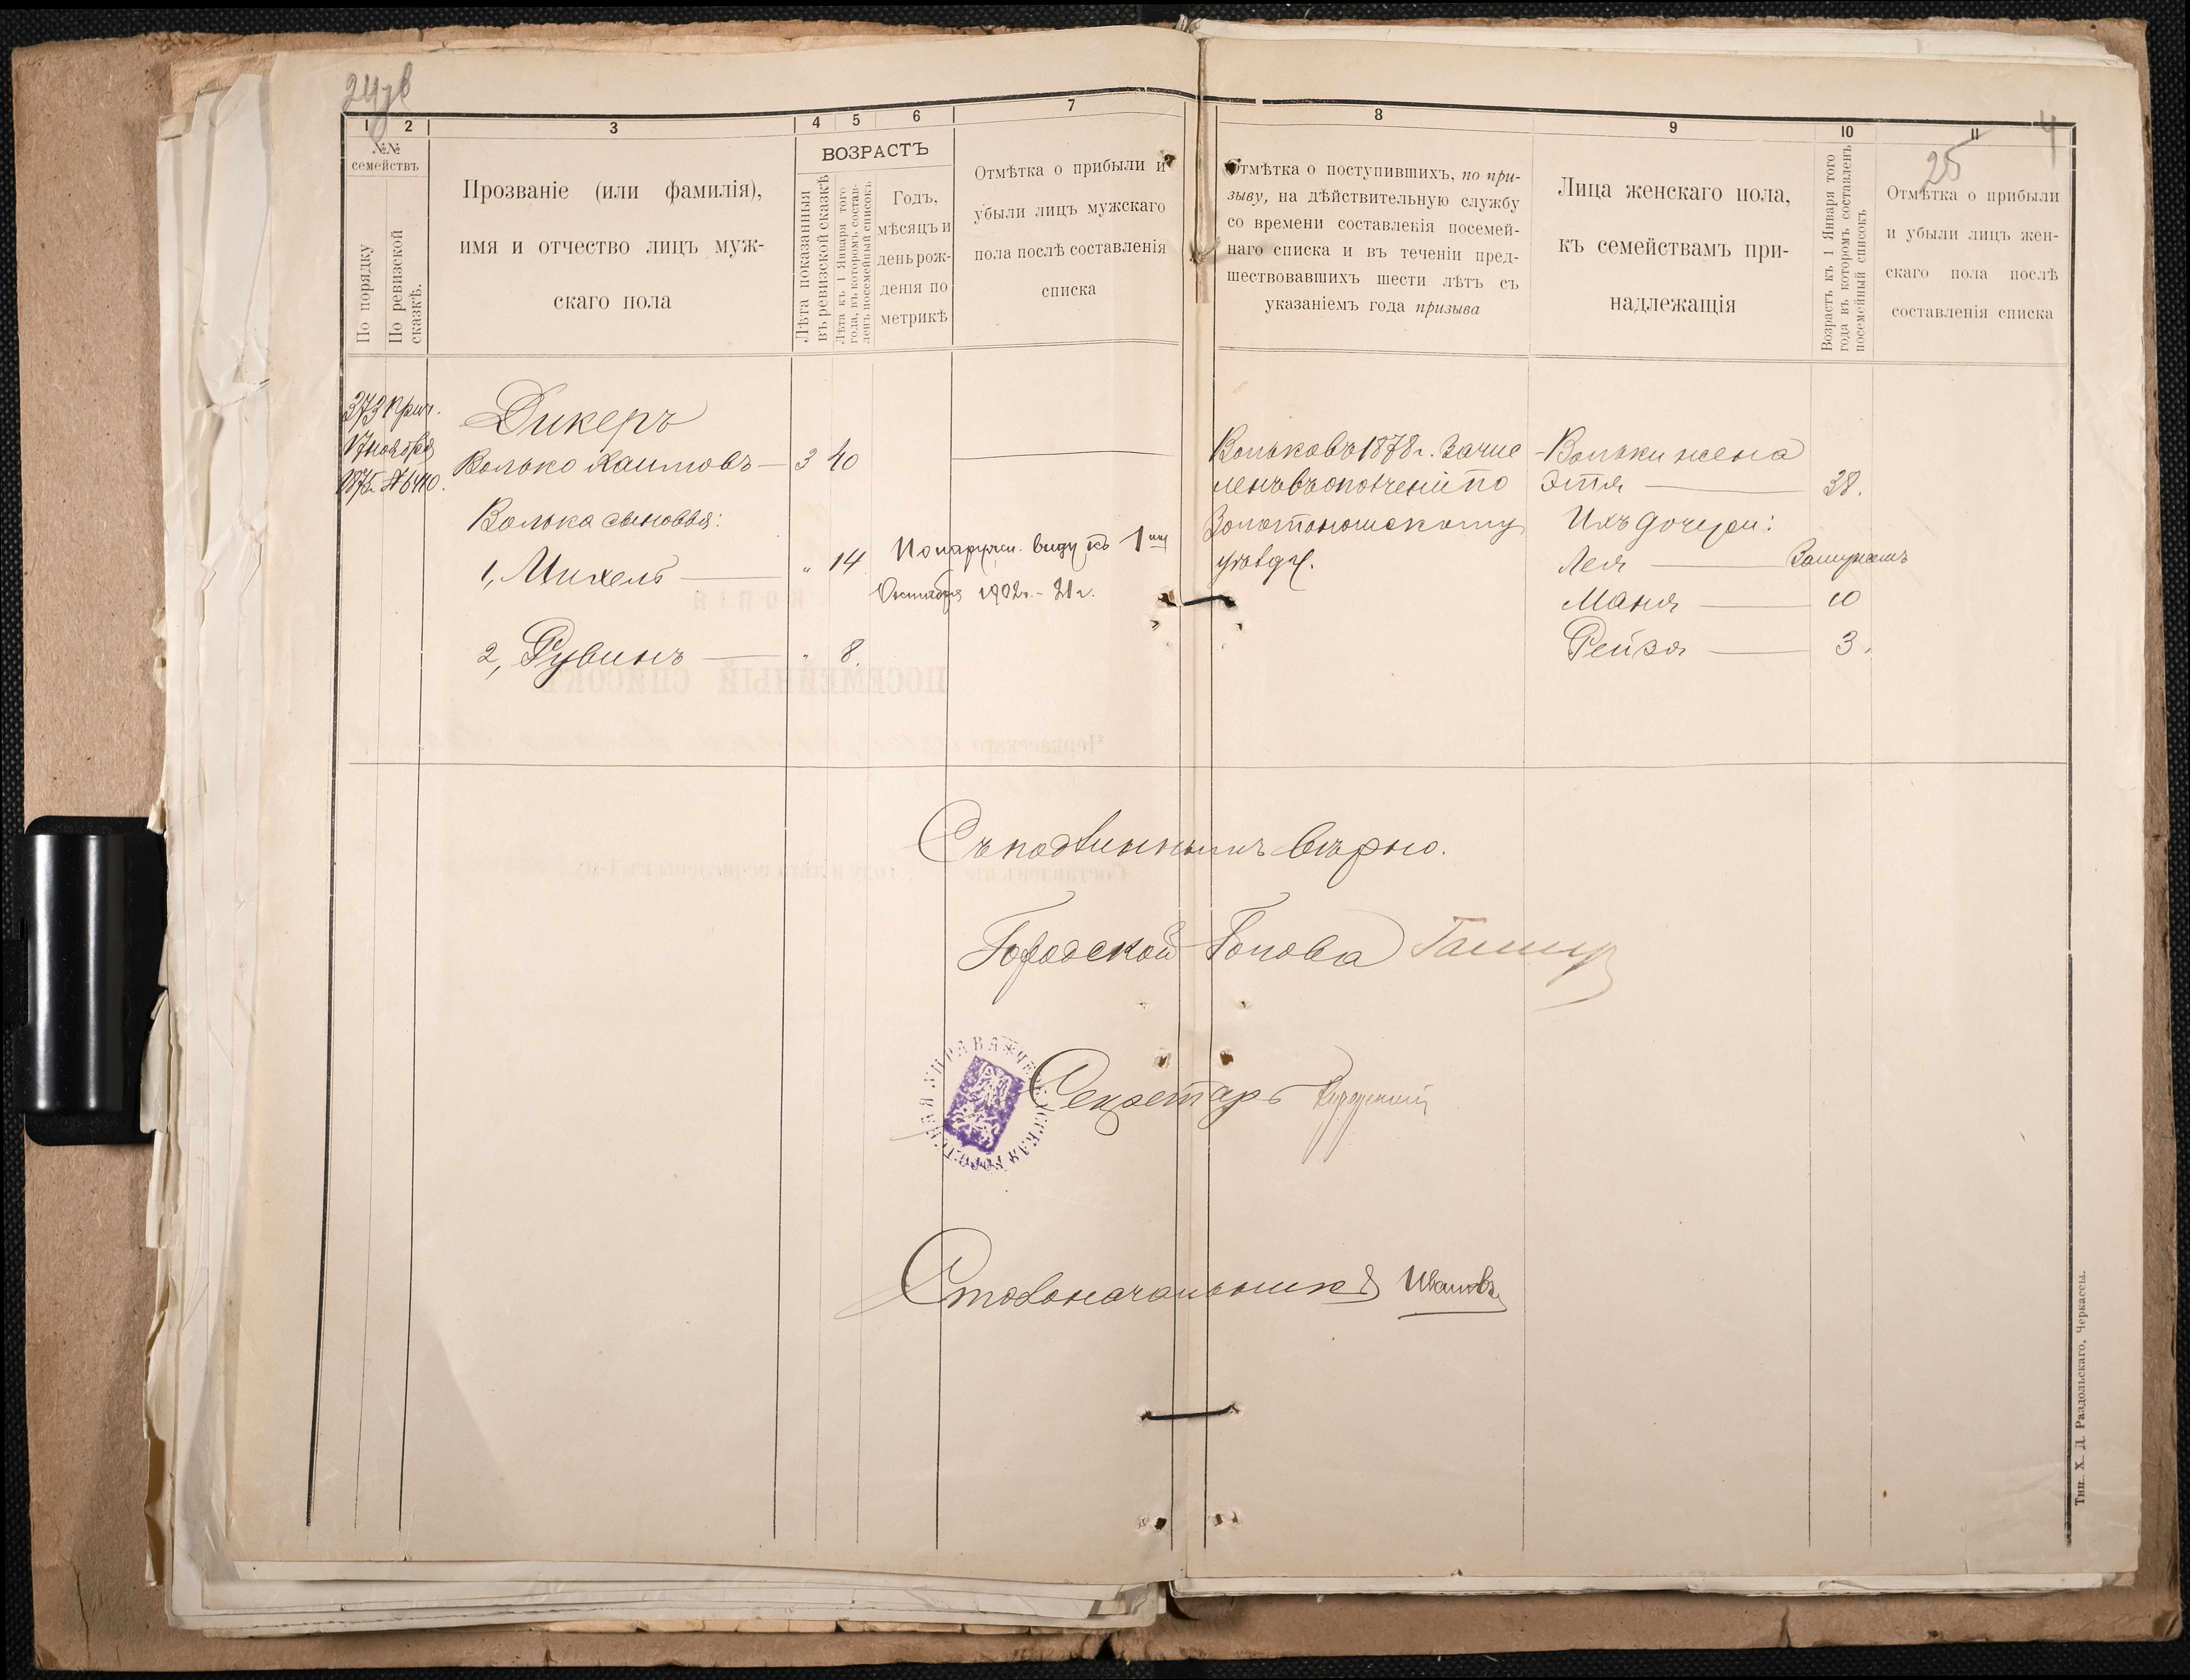 24зв
4
25
1
2
3
4
5
6
7
8
9
10
11
№№
семействъ
По порядку
По ревизской
сказкѣ.
Прозваніе (или фамилія),
имя и отчество лицъ муж-
скаго пола
ВОЗРАСТЪ
Лѣта показанныя
въ ревизской сказкѣ
Лѣта къ 1 Января того
года, въ которомъ состав-
ленъ посемейный списокъ
Годъ,
мѣсяцъ и
день рож-
денія по
метрикѣ
Отмѣтка о прибыли и
убыли лицъ мужскаго
пола послѣ составленія
списка
Отмѣтка о поступившихъ, по при-
зыву, на дѣйствительную службу
со времени составленія посемей-
наго списка и въ теченіи пред-
шествовавшихъ шести лѣтъ съ
указаніемъ года призыва
Лица женскаго пола,
къ семействамъ при-
надлежащія
Возрастъ къ 1 Января того
года въ которомъ составленъ
посемейный списокъ
Отмѣтка о прибыли
и убыли лиць жен-
скаго пола послѣ
составленія списка
373 Прич.
17 ноября
1875 г. № 6440.
Дикеръ
Волько Хаимовъ — 3 40
Волька сыновья:
1, Михель — " 14
По наружн. виду къ 1му
Октября 1902 г. - 21 г.
2, Рувинъ — " 8.
Вольковъ 1878 г. Зачис
ленъ въ ополченіе по
Золотоношскому
уѣзду.
Вольки жена
Этя — 38.
Ихъ дочери:
Лея — Замужемъ
Маня — 10
Рейзя — 3.
Съ подлиннымъ вѣрно.
Городской Голова
Секретарь
Столоначальникъ Ивановъ
ЧЕРКАССКАЯ ГОРОДСКАЯ УПРАВА
Тип. Х. Д. Раздольскаго, Черкассы.